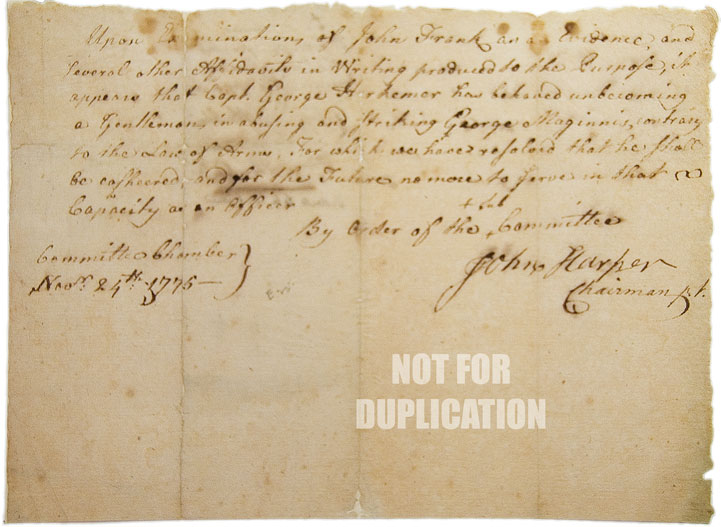 Upon Examination of John Frank as an Evidence, and
several other Affidavits in Writing produced to the Purpose, it
appears that Capt. George Herkemer has behaved unbecoming
a Gentleman in abusing and Striking George Maginnis, contrary
to the Law of Arms, For which we have resolved that he shall
be casheered, and for the Future no more to serve in that
Capacity as an Officer
+ Sub
By Order of the Committee
Committee Chamber
Novr. 24th. 1775 —
John Harper
Chairman
NOT FOR
DUPLICATION